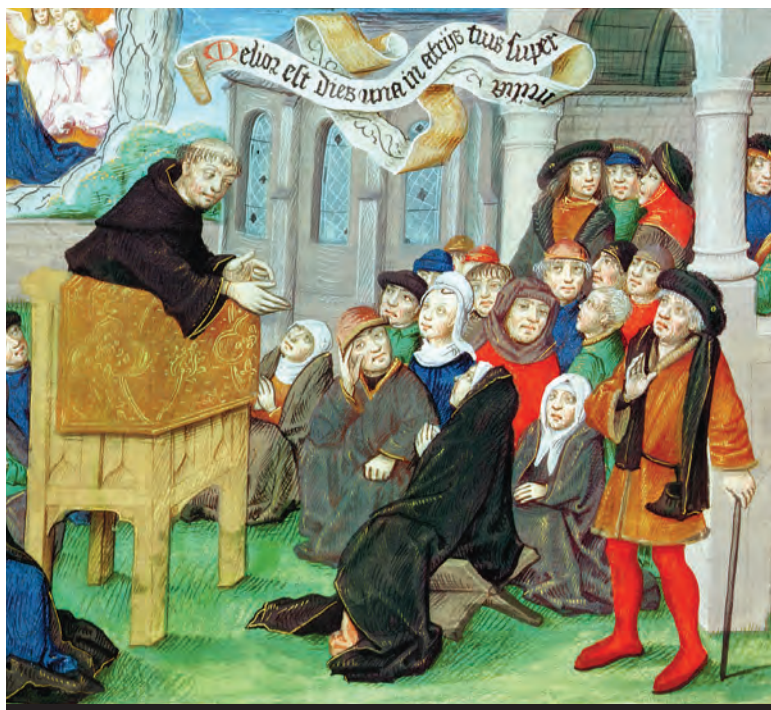 Melior est dies una in atrijs tuis super
milia